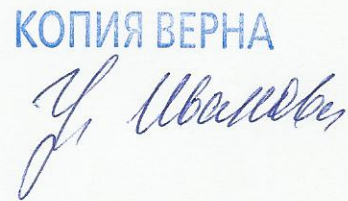 КОПИЯ ВЕРНА
Иванова